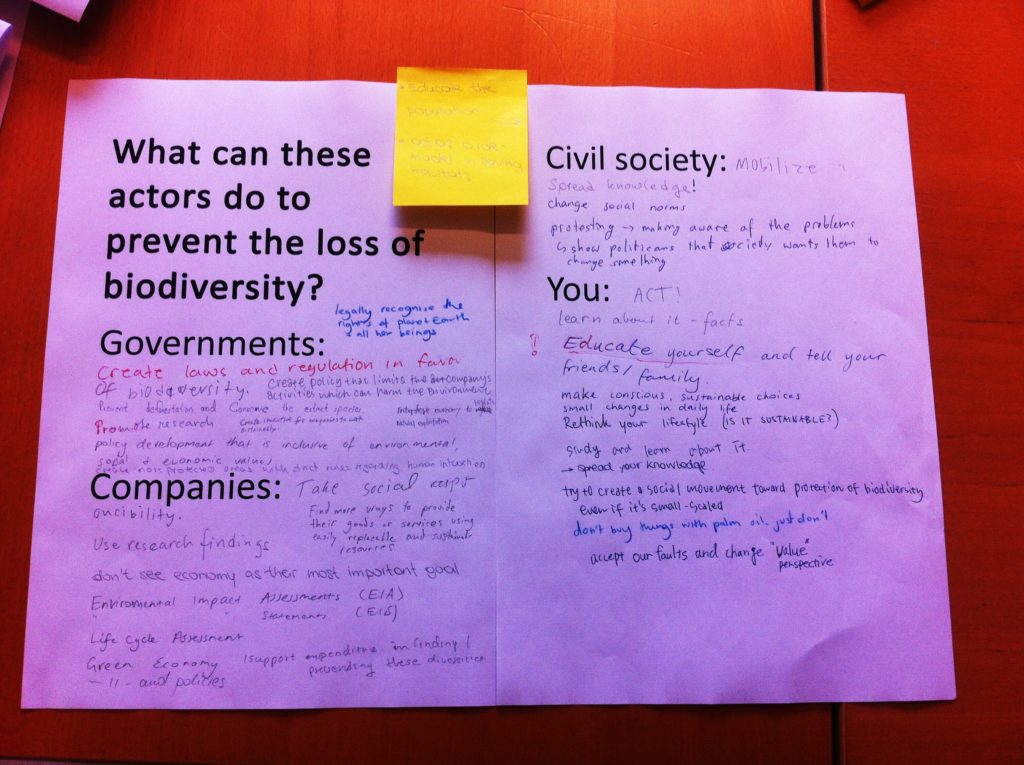 What can these
actors do to
prevent the loss of
biodiversity?
• Educate the
population
model in saving
habitats
legally recognise the
rights of planet Earth
& all her beings
Governments:
Create laws and regulation in favor
Of biodiversity.
Create policy that limits the company's
activities which can harm the environment
Prevent deforestation and Conserve the extinct species
Promote research
natural exploitation
policy development that is inclusive of environmental,
social & economic values
create more protected areas with strict rules regarding human interaction
Companies: Take social respons
oncibility.
Find more ways to provide
their goods or services using
easily replaceable and sustainable
resources
Use research findings
don't see economy as their most important goal
Enviromental Impact Assessments (EIA)
" " Statements (EIS)
Life Cycle Assessment
Green Economy
- 11 - and policies
support expenditure in finding /
preventing these diversities
Civil society: MOBILIZE
Spread knowledge!
change social norms
protesting → making aware of the problems
↳ show politicans that society wants them to
change something
You: ACT!
learn about it - facts
! Educate yourself and tell your
friends/family.
make conscious, sustainable choices
small changes in daily life
Rethink your lifestyle (IS IT SUSTAINABLE?)
study and learn about it
→ spread your knowledge
try to create a social movement toward protection of biodiversity
even if it's small-scaled
don't buy things with palm oil. just don't
accept our faults and change "value"
perspective